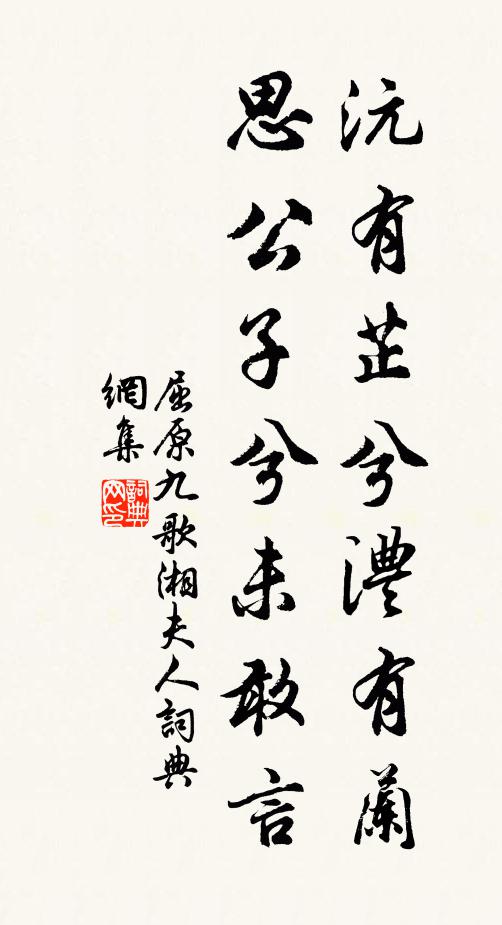 沅有芷兮澧有蘭
思公子兮未敢言
屈原九歌湘夫人詞典
網集
詞典
网印